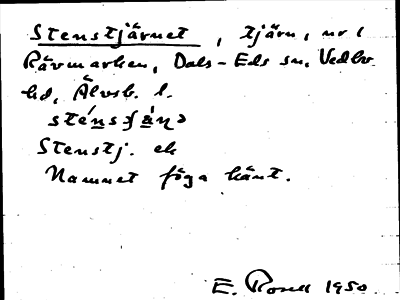 Stenstjärnet, tjärn, nr i
Rävmarken, Dals-Eds sn, Vedbo
hd, Älvsb. l.
Stenstj. ek
Namnet föga känt.
E. Rosell 1950